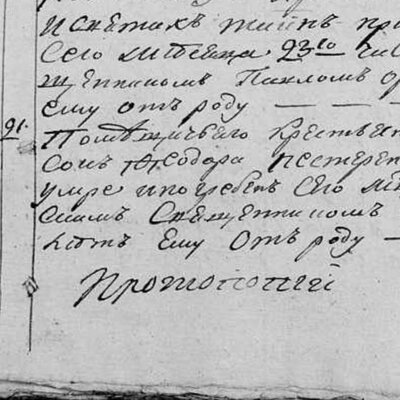 и святихъ таинъ при
сего мѣсяца 23го чис
щенникомъ Павломъ
ему отъ роду — — —
91. Помѣщичьего крестьян
сонъ Ѳеодора
умре и погребенъ сего мѣ
симъ Священникомъ
лѣтъ ему отъ роду —
Протопопий